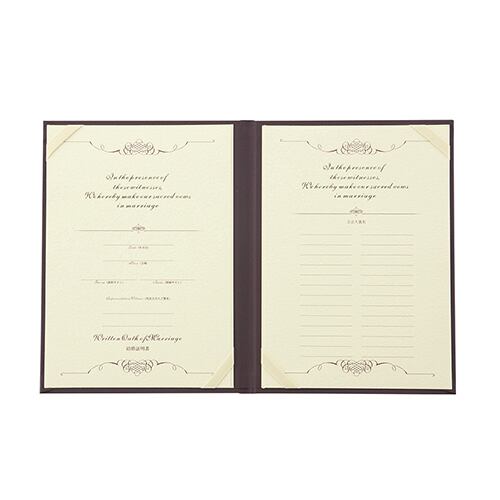 In the presence of
these witnesses,
We hereby make our sacred vows
in marriage
Written Oath of Marriage
結婚証明書
In the presence of
these witnesses,
We hereby make our sacred vows
in marriage
立会人署名